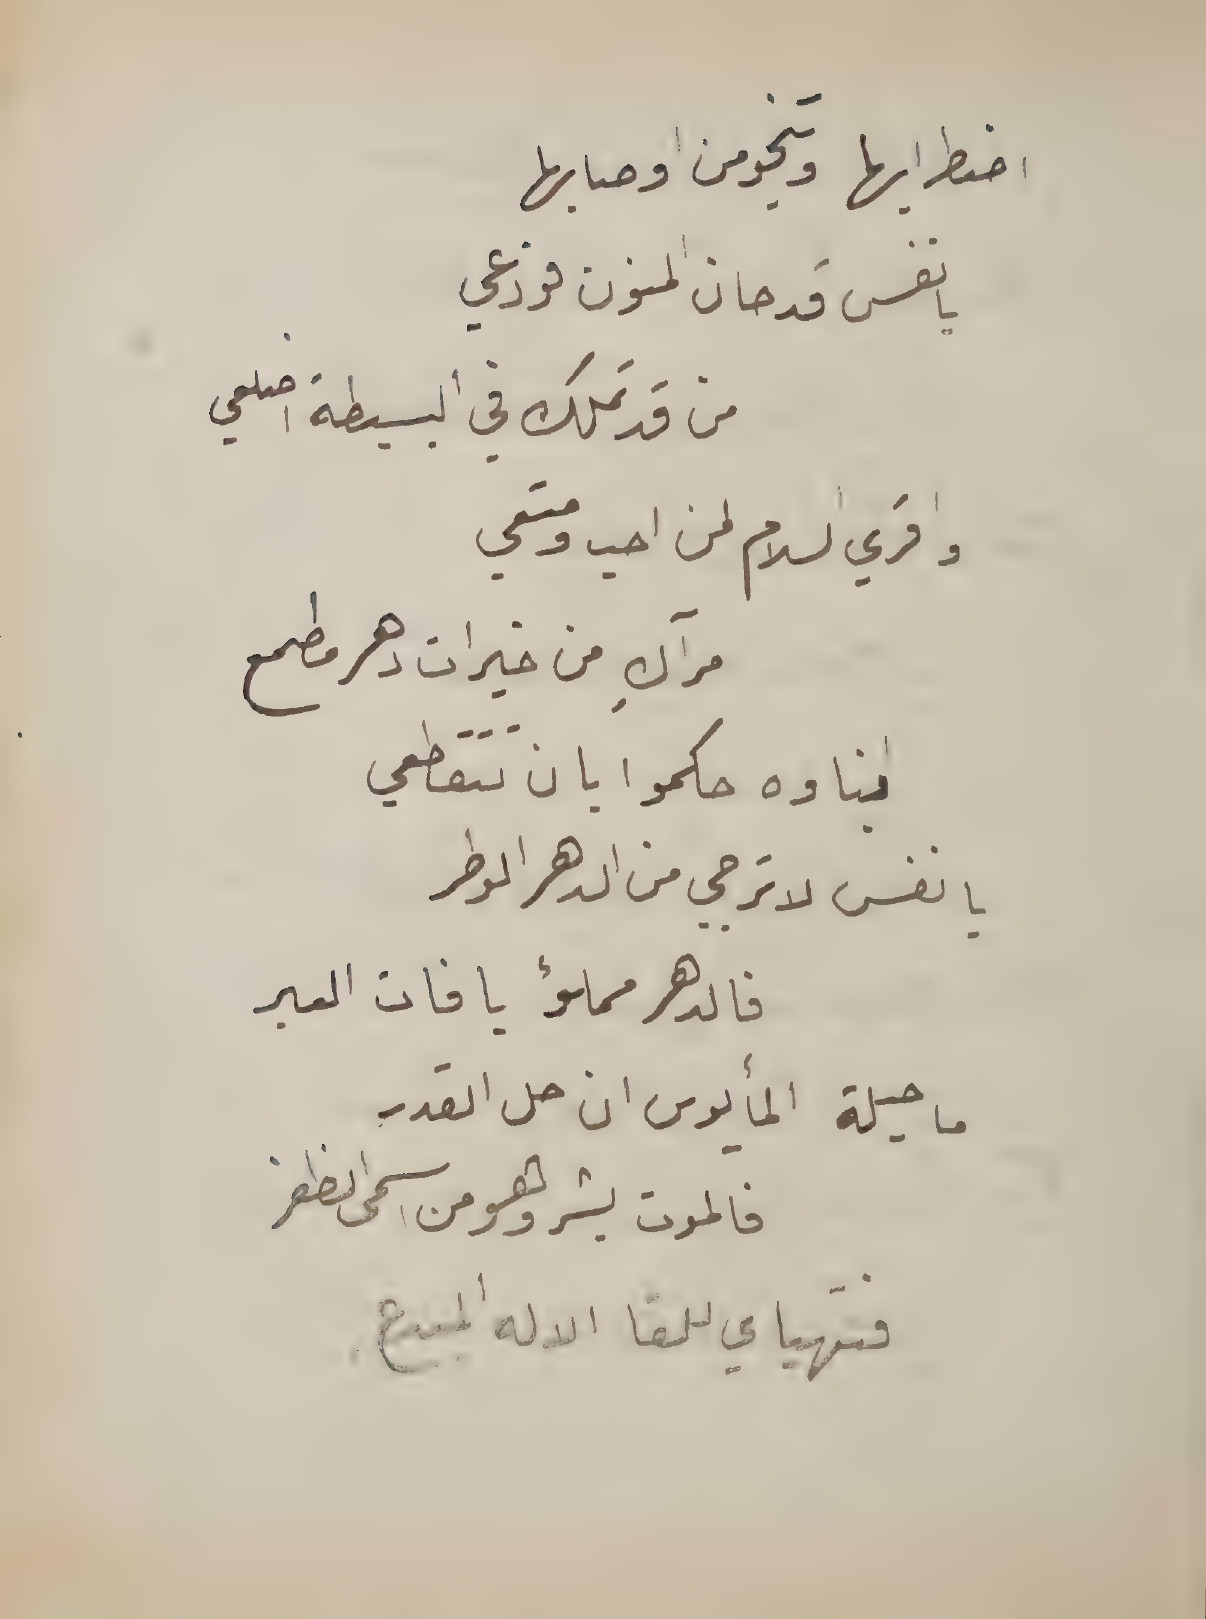 اضطرابها وتنجو من اوصابها
يا نفس قد حان المنون فودعي
من قد تملك في البسيطة اضلعي
واقري السلام لمن احب ومتعي
مرآكِ من خيرات دهر مطمع
ابناوه حكموا بان تتقطعي
يا نفس لا ترجي من الدهر الوطر
فالدهر مملوؤ بافات العبر
ما حيلة المأيوس ان حل القدر
فالموت بشر وهو من اسمى الظفر
فتهياي للقا الاله المبدع